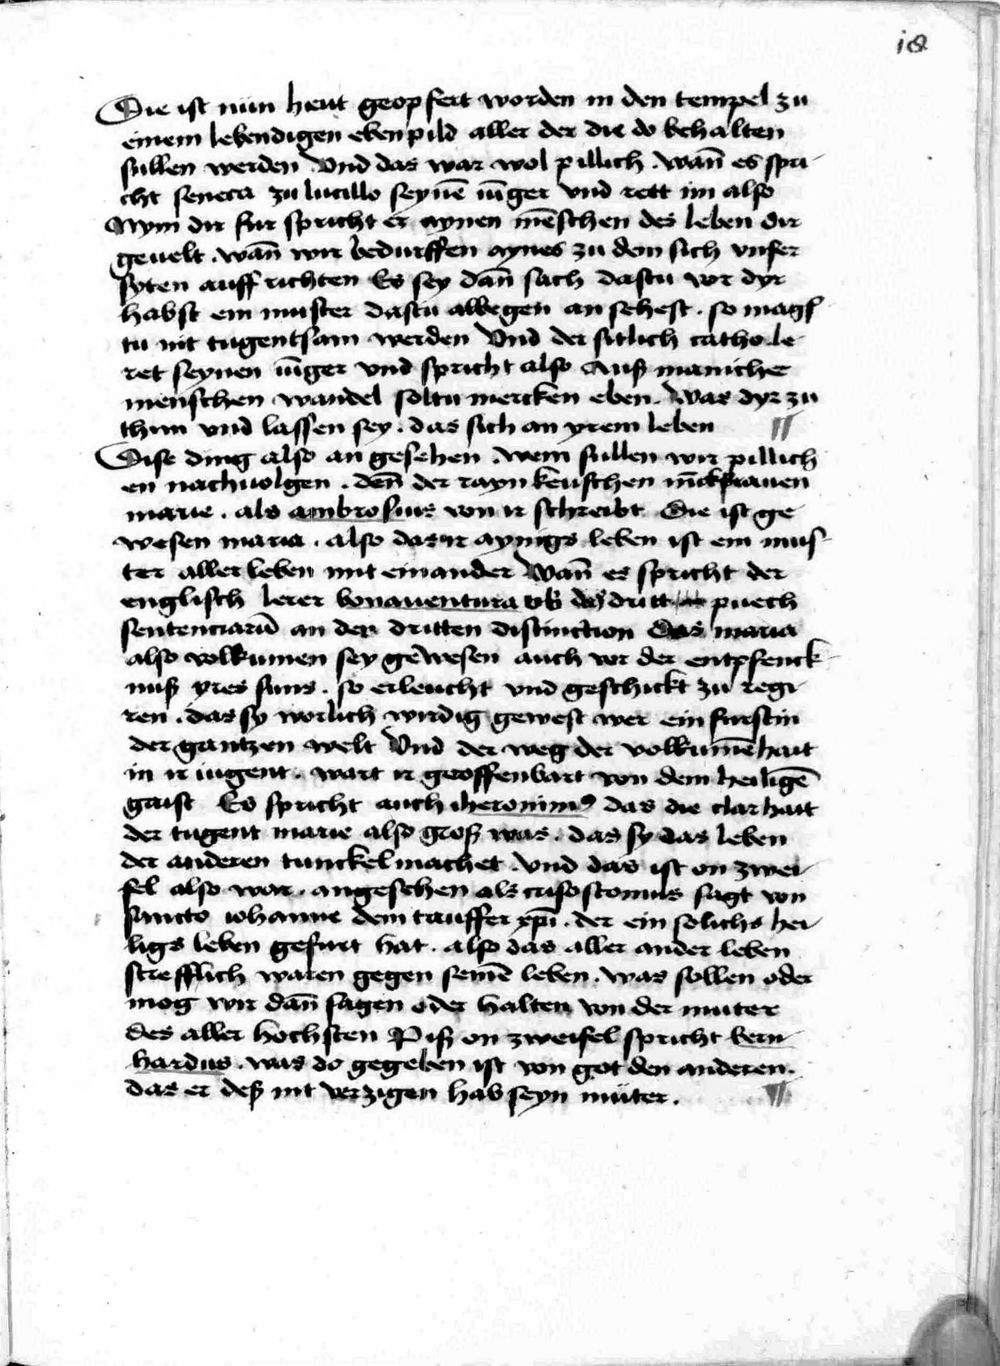 i8
Die ist nün heut geopfert worden in den tempel zu
einem lebendigen ebenpild aller der die do behalten
sullen werden Vnd das war wol pillich . wan̄ es spri
cht seneca zu lucillo seynē iūger vnd rett im also
Nym dir fur spricht er aynen mēschen des leben dir
geuelt . wan̄ wir bedurffen aynes zu dem sich vnser
syten auff richten Es sey dan̄ sach dastu vor dyr
habst ein muster dastu albegen an sehest . so magst
tu nit tugentsam werden Vnd der sitlich catho le
ret seynen iūger vnd spricht also Auß manicher
menschen wandel soltu mercken eben . Was dyr zu
thun vnd lassen sey . das sich an yrem leben
Dise ding also an gesehen . wem sullen wir pillich
en nachuolgen . den̄ der rayn keuschen iūckfrauen
marie . als ambrosius von ir schreibt Die ist ge
wesen maria . also das ir aynigs leben ist ein mus
ter aller leben mit einander Wan̄ es spricht der
englisch lerer bonauentura dritt puech
sentenciarū an der dritten distinction Das maria
also volkumen sey gewesen auch vor der entpfenck
nuß yres suns . so erleucht vnd geschickt zu regi
ren . das sy worlich wirdig gewest wer ein furstin
der gantzen welt Vnd der weg der volkumēhait
in ir iugent . wart ir geoffenbart von dem heiligē
gaist Es spricht auch iheronimꝰ das die clarhait
der tugent marie also groß was . das sy das leben
der anderen tunckel machet . Vnd das ist on zwei
fel also war . angesehen als crisostomus sagt von
sancto iohanne dem tauffer xp̄i . der ein solichs hei
ligs leben gefurt hat . also das aller ander leben
strefflich waren gegen seinē leben . was sollen oder
mog wir dan̄ sagen oder halten von der muter
des aller hochsten Piß on zweifel spricht bern
hardus . was do gegeben ist von got den anderen .
das er deß nit verzigen hab seyn müter .